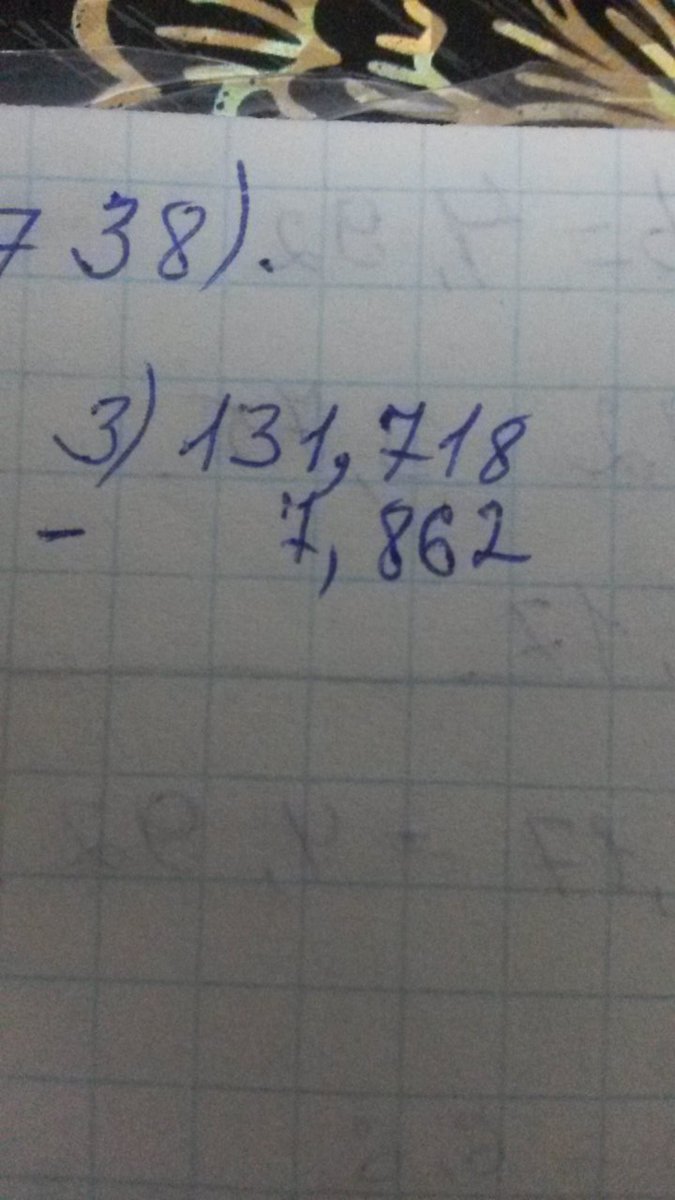 7 38).
3) 131,718
- 7,862